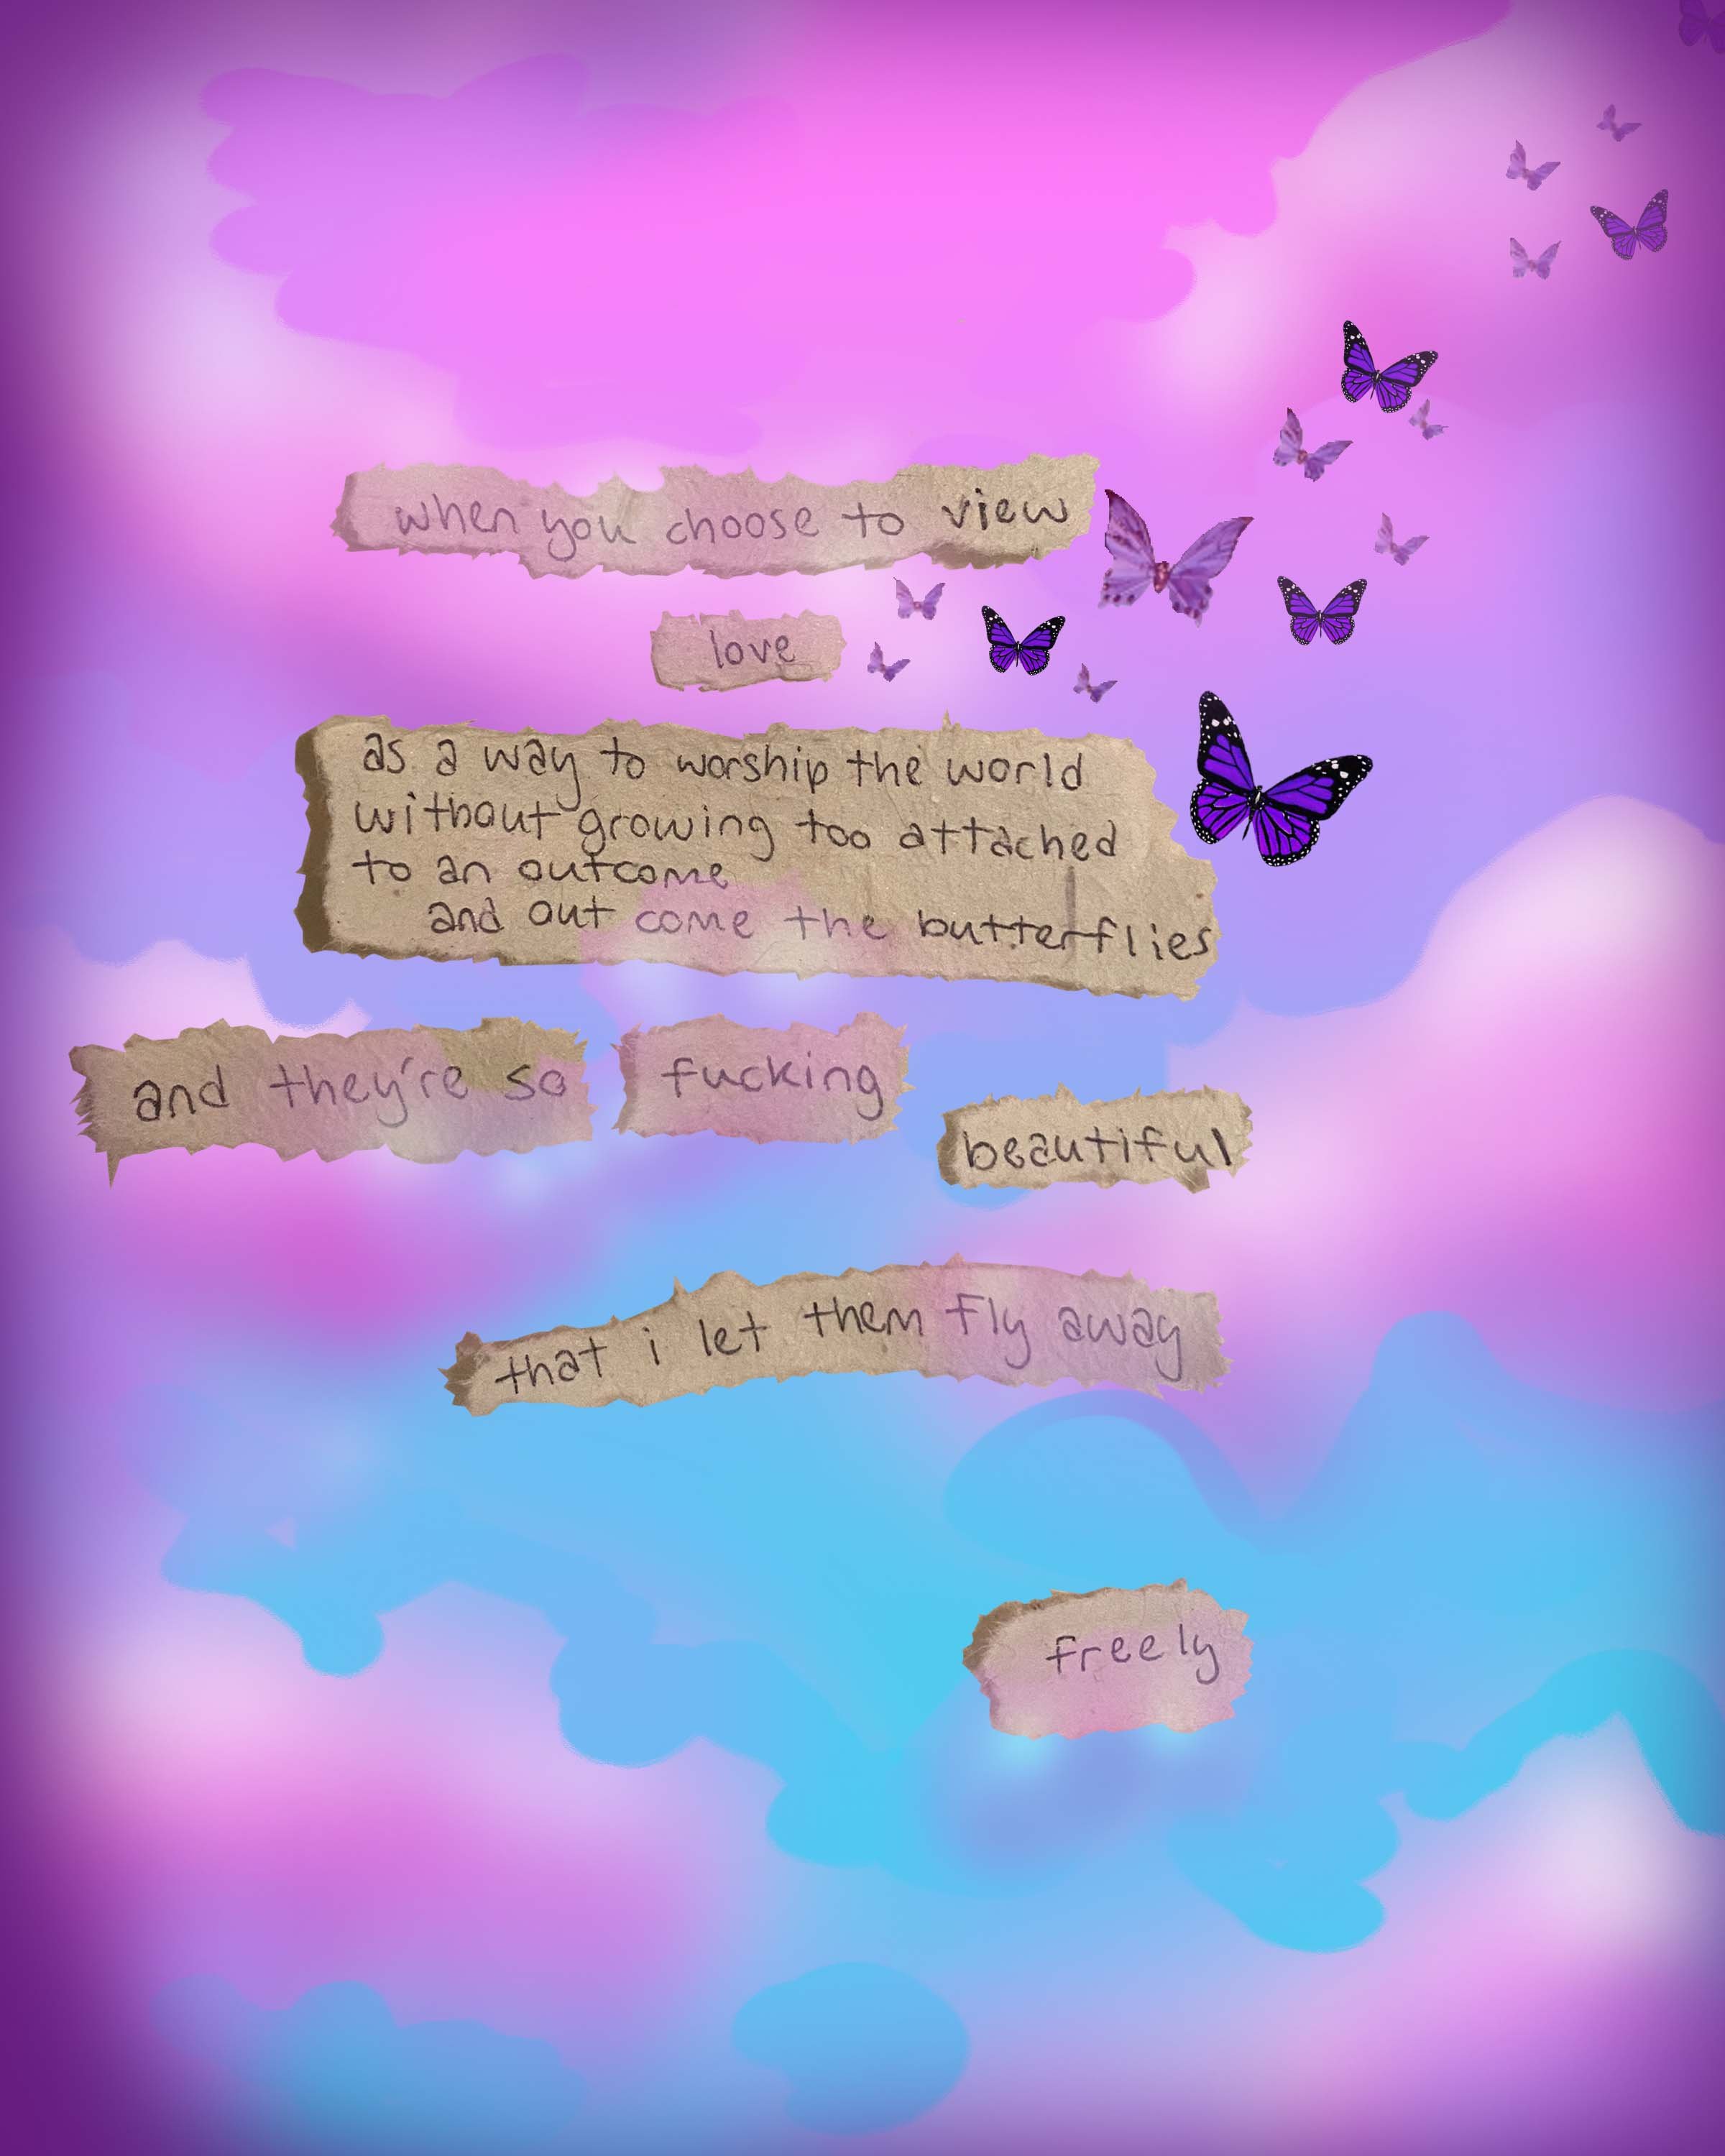 when you choose to view
love
as a way to worship the world
without growing too attached
to an outcome
and out come the butterflies
and they're so fucking
beautiful
that i let them fly away
freely